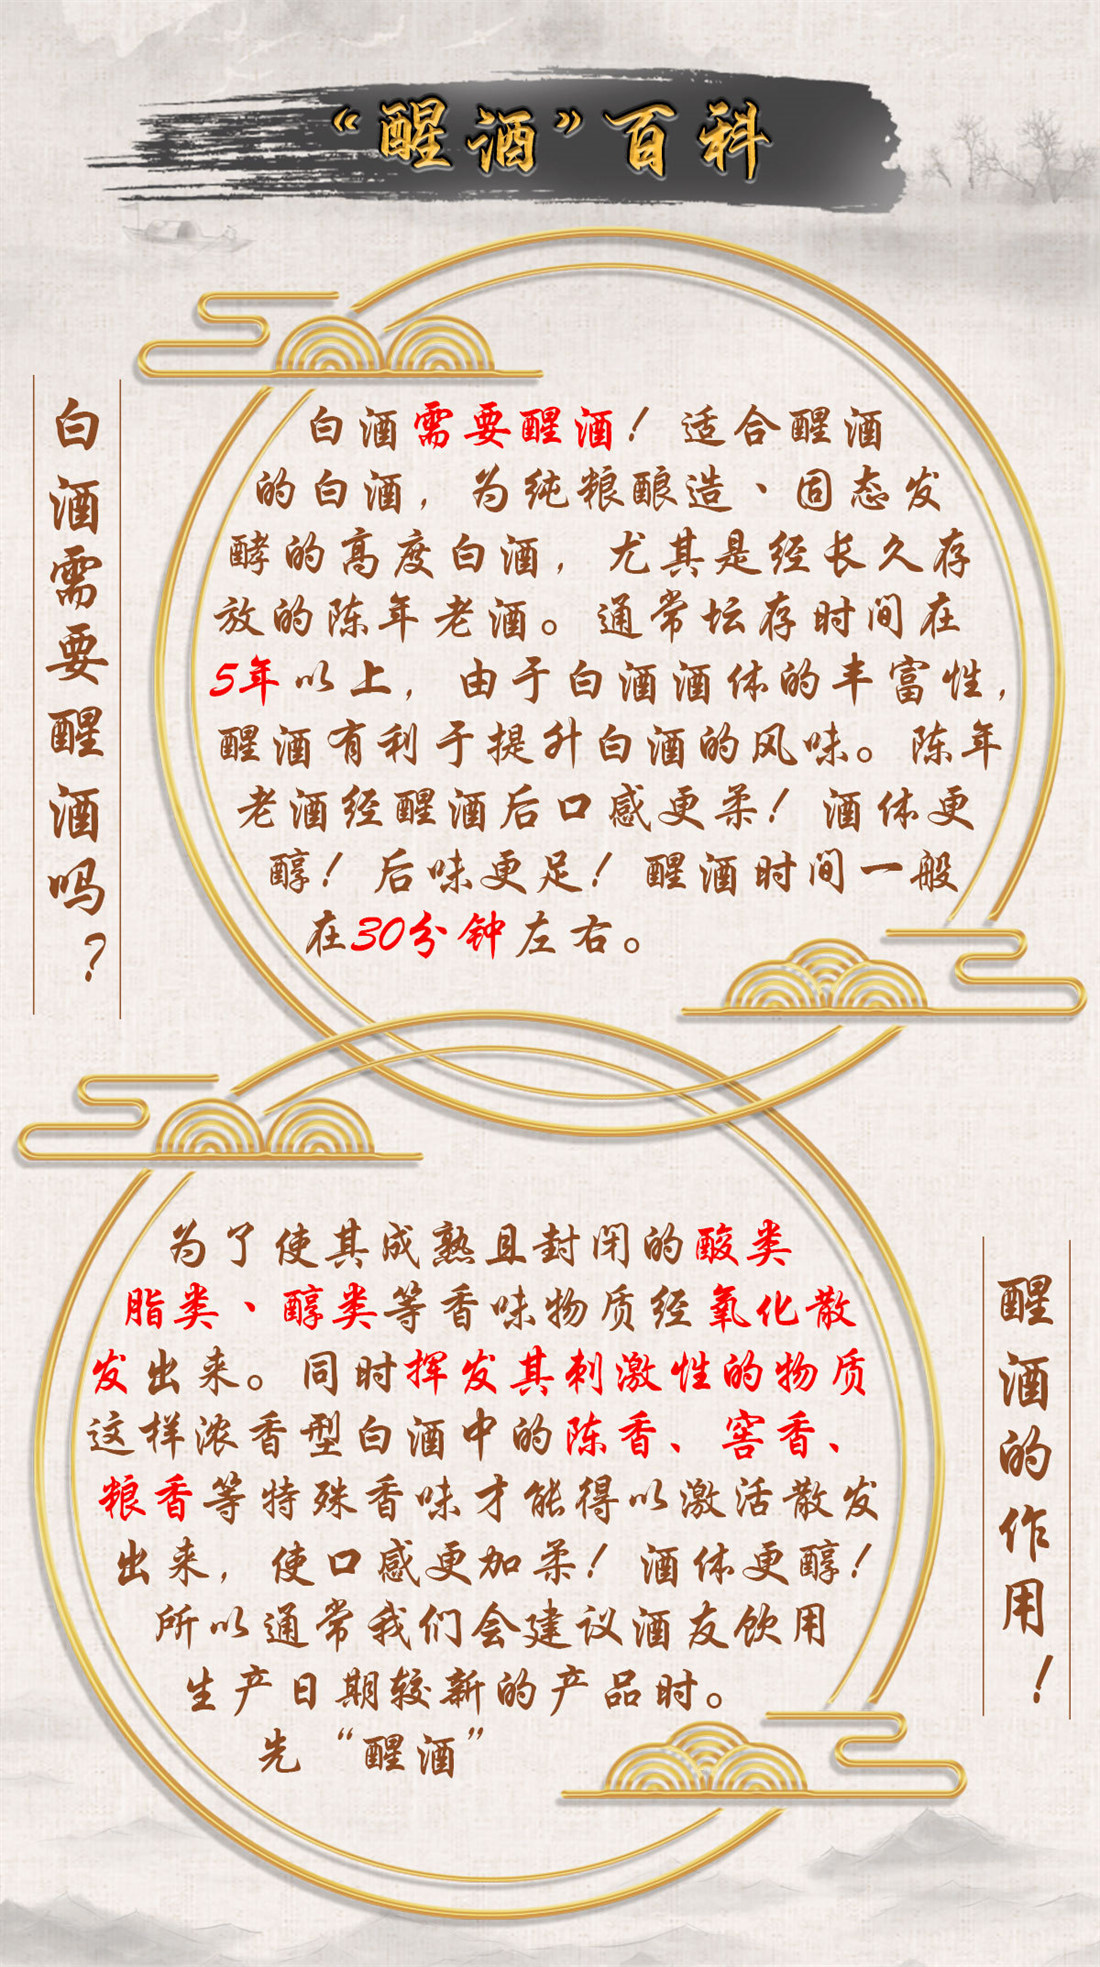 “醒酒”百科
白酒需要醒酒吗？
白酒需要醒酒！适合醒酒
的白酒，为纯粮酿造、固态发
酵的高度白酒，尤其是经长久存
放的陈年老酒。通常坛存时间在
5年以上，由于白酒酒体的丰富性，
醒酒有利于提升白酒的风味。陈年
老酒经醒酒后口感更柔！酒体更
醇！后味更足！醒酒时间一般
在30分钟左右。
醒酒的作用！
为了使其成熟且封闭的酸类
脂类、醇类等香味物质经氧化散
发出来。同时挥发其刺激性的物质
这样浓香型白酒中的陈香、窖香、
粮香等特殊香味才能得以激活散发
出来，使口感更加柔！酒体更醇！
所以通常我们会建议酒友饮用
生产日期较新的产品时。
先“醒酒”